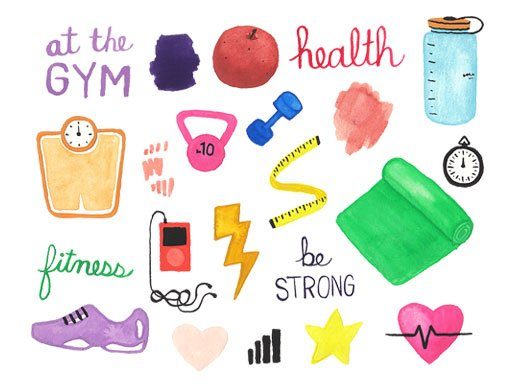 at the
GYM
health
10
fitness
be
STRONG